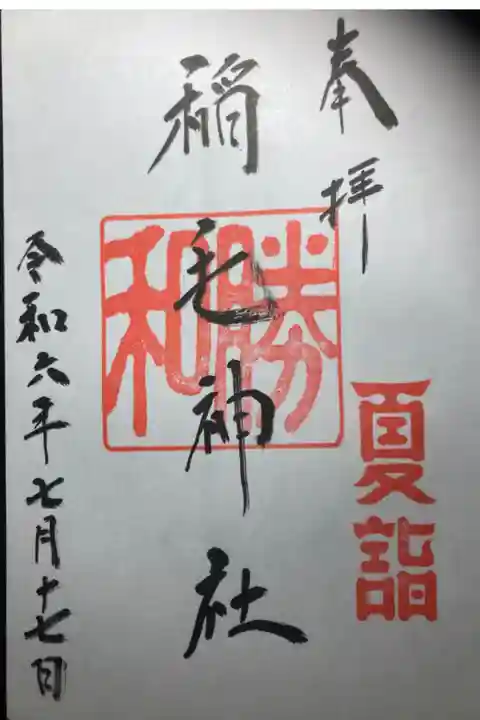 奉拝
夏詣
勝和
稲毛神社
令和六年七月十七日